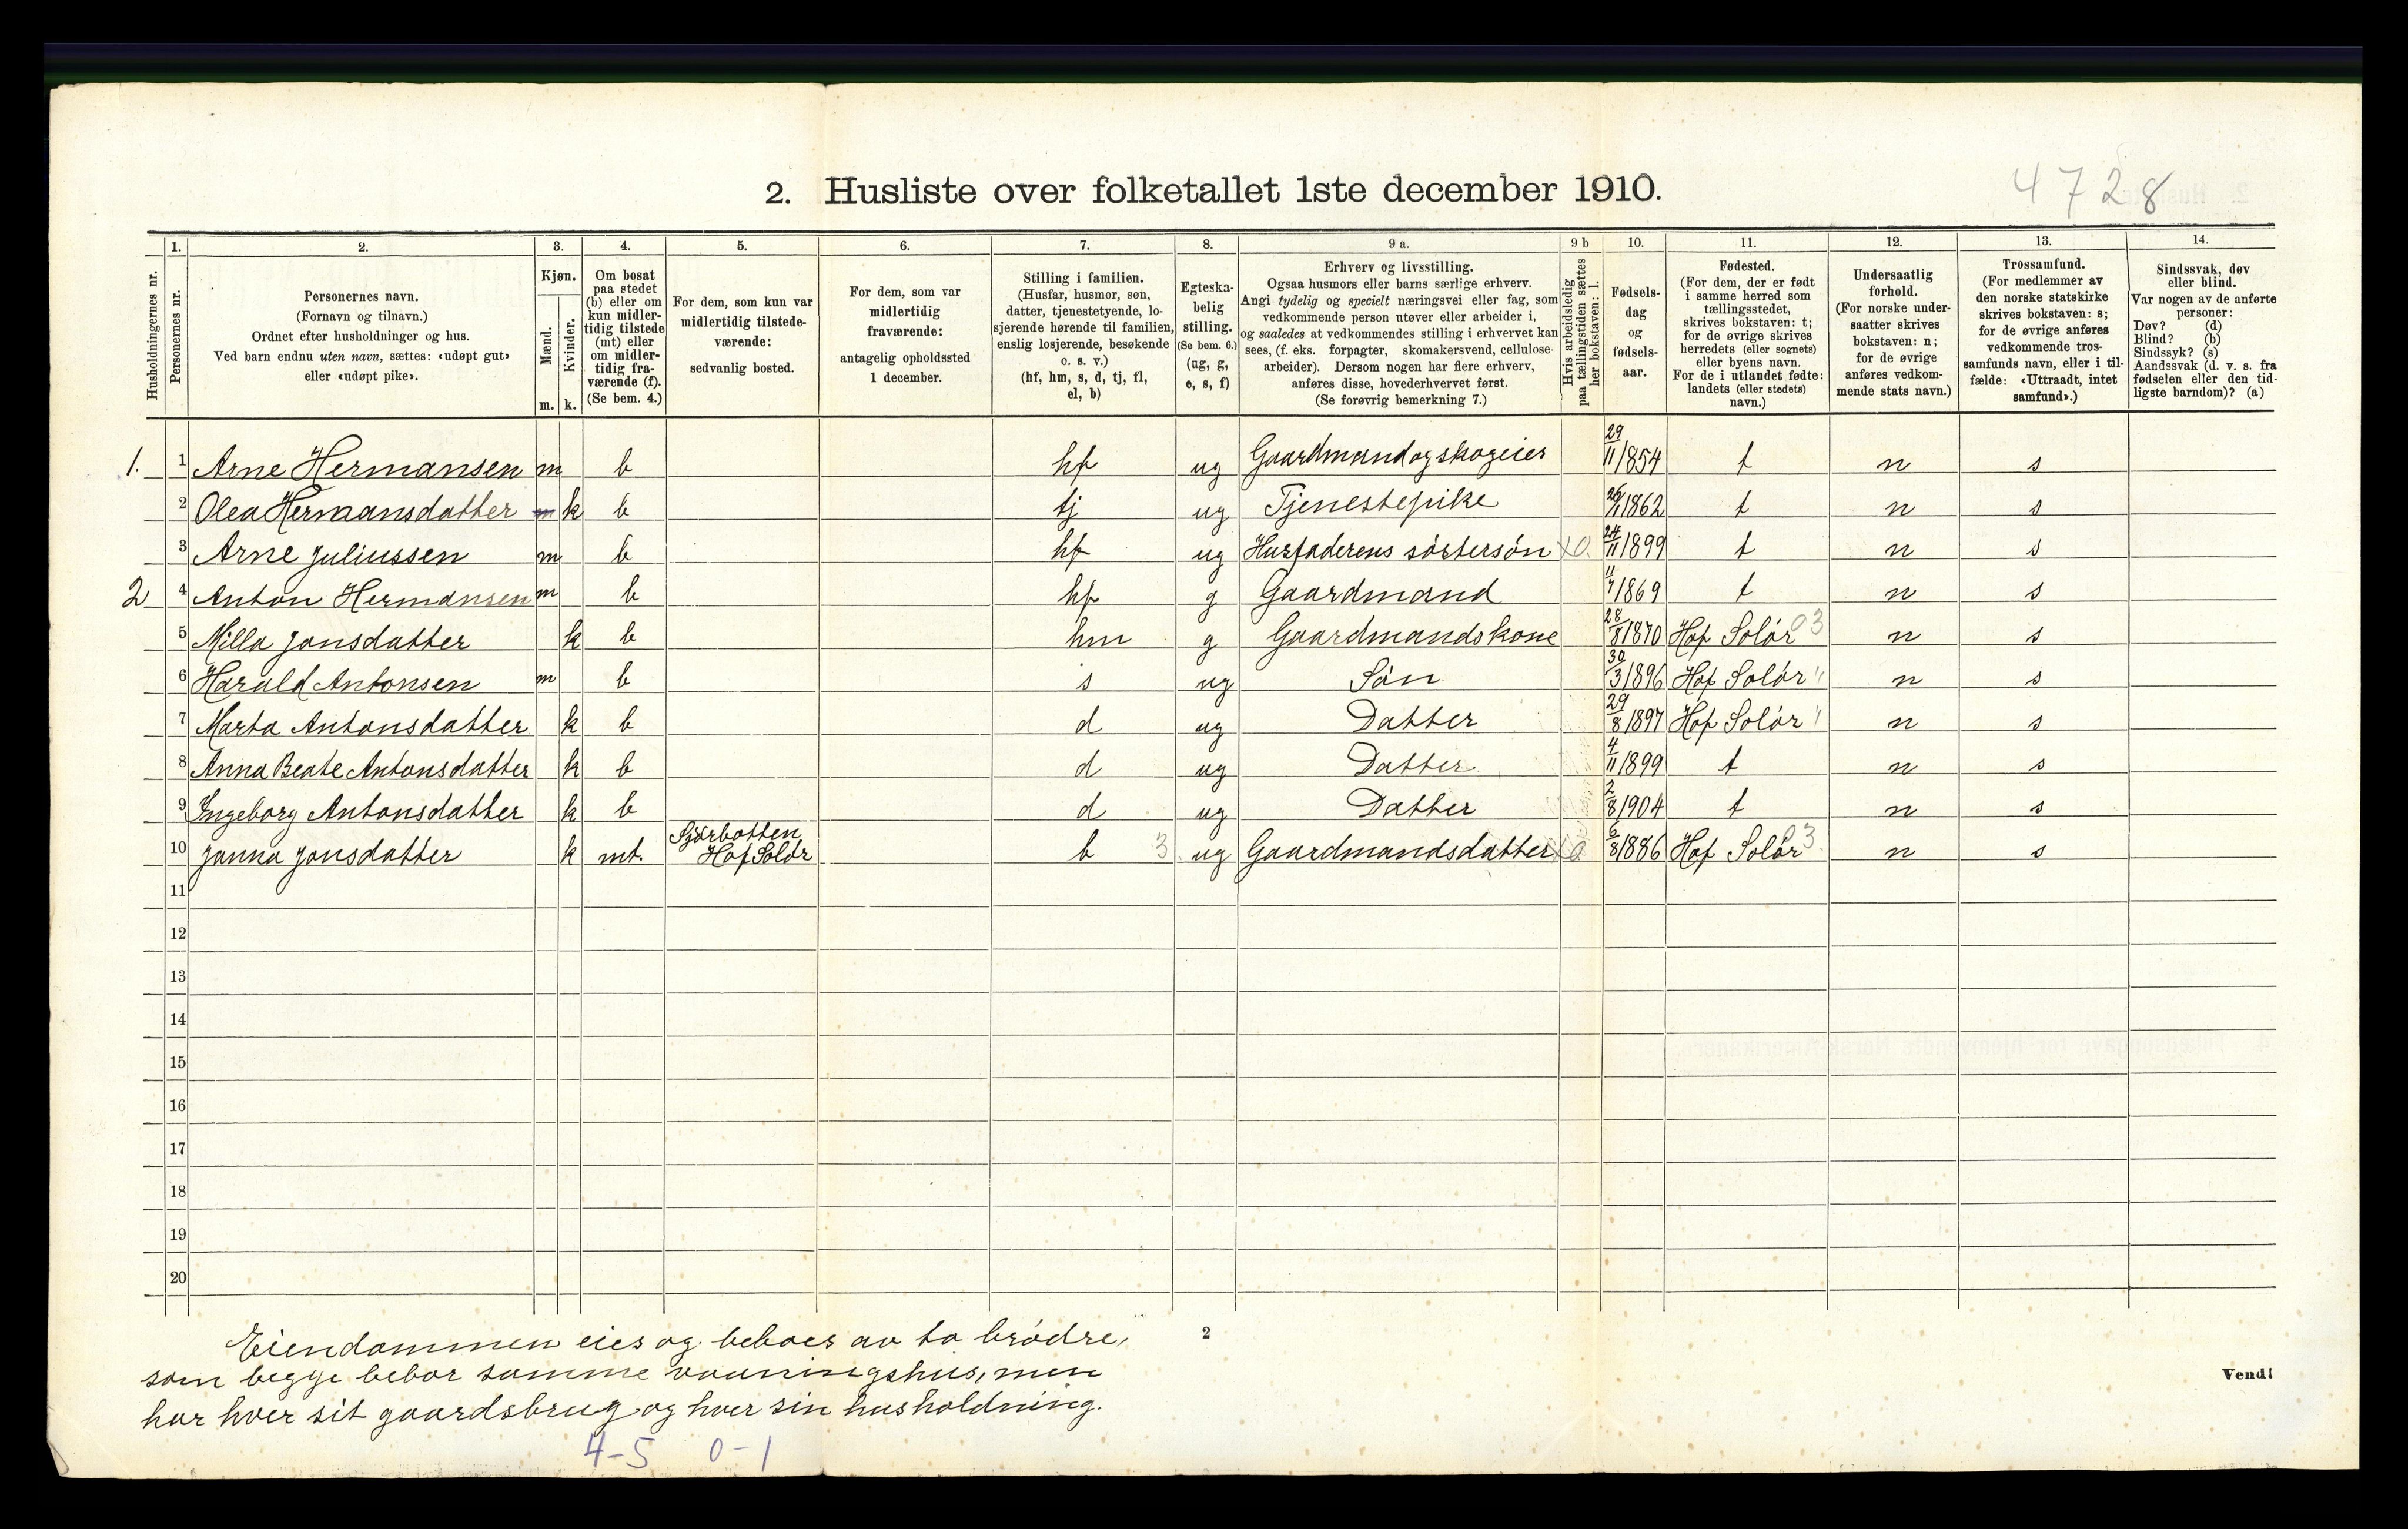 4728
2. Husliste over folketallet 1ste december 1910.
Husholdningernes nr.
1. Personernes nr.
2. Personernes navn.
(Fornavn og tilnavn.)
Ordnet efter husholdninger og hus.
Ved barn endnu uten navn, sættes: «udøpt gut»
eller «udøpt pike».
3. Kjøn.
Mænd. m.
Kvinder. k.
4. Om bosat
paa stedet
(b) eller om
kun midler-
tidig tilstede
(mt) eller
om midler-
tidig fra-
værende (f).
(Se bem. 4.)
5. For dem, som kun var
midlertidig tilstede-
værende:
sedvanlig bosted.
6. For dem, som var
midlertidig
fraværende:
antagelig opholdssted
1 december.
7. Stilling i familien.
(Husfar, husmor, søn,
datter, tjenestetyende, lo-
sjerende hørende til familien,
enslig losjerende, besøkende
o. s. v.)
(hf, hm, s, d, tj, fl,
el, b)
8. Egteska-
belig
stilling.
(Se bem. 6.)
(ug, g,
e, s, f)
9 a. Erhverv og livsstilling.
Ogsaa husmors eller barns særlige erhverv.
Angi tydelig og specielt næringsvei eller fag, som
vedkommende person utøver eller arbeider i,
og saaledes at vedkommendes stilling i erhvervet kan
sees, (f. eks. forpagter, skomakersvend, cellulose-
arbeider). Dersom nogen har flere erhverv,
anføres disse, hovederhvervet først.
(Se forøvrig bemerkning 7.)
9 b Hvis arbeidsledig
paa tællingstiden sættes
her bokstaven: l.
10. Fødsels-
dag
og
fødsels-
aar.
11. Fødested.
(For dem, der er født
i samme herred som
tællingsstedet,
skrives bokstaven: t;
for de øvrige skrives
herredets (eller sognets)
eller byens navn.
For de i utlandet fødte:
landets (eller stedets)
navn.)
12. Undersaatlig
forhold.
(For norske under-
saatter skrives
bokstaven: n;
for de øvrige
anføres vedkom-
mende stats navn.)
13. Trossamfund.
(For medlemmer av
den norske statskirke
skrives bokstaven: s;
for de øvrige anføres
vedkommende tros-
samfunds navn, eller i til-
fælde: «Uttraadt, intet
samfund».)
14. Sindssvak, døv
eller blind.
Var nogen av de anførte
personer:
Døv? (d)
Blind? (b)
Sindssyk? (s)
Aandssvak (d. v. s. fra
fødselen eller den tid-
ligste barndom)? (a)
1. 1 Arne Hermansen m b hf ug Gaardmand og skogeier 29/11 1854 t n s
2 Olea Hermansdatter m k b tj ug Tjenestepike 1862 t n s
3 Arne Juliussen m b hf ug Husfaderens søstersøn 24/11 1899 t n s
2 4 Anton Hermansen m b hf g Gaardmand 11/7 1869 t n s
5 Milla Jonsdatter k b hm g Gaardmandskone 28/8 1870 Hof Solør 03 n s
6 Harald Antonsen m b s ug Søn 30/3 1896 Hof Solør " n s
7 Marta Antonsdatter k b d ug Datter 29/8 1897 Hof Solør " n s
8 Anna Beate Antonsdatter k b d ug Datter 4/11 1899 t n s
9 Ingeborg Antonsdatter k b d ug Datter 2/8 1904 t n s
10 Janna Jonsdatter k mt. Sjørbotten Hof Solør b 3 ug Gaardmandsdatter 6/8 1886 Hof Solør 03 n s
11
12
13
14
15
16
17
18
19
20
Eiendommen eies og beboes av to brødre,
som begge bebor samme vaaningshus, men
har hver sit gaardsbrug og hver sin husholdning.
2
Vend!
4-5 0-1